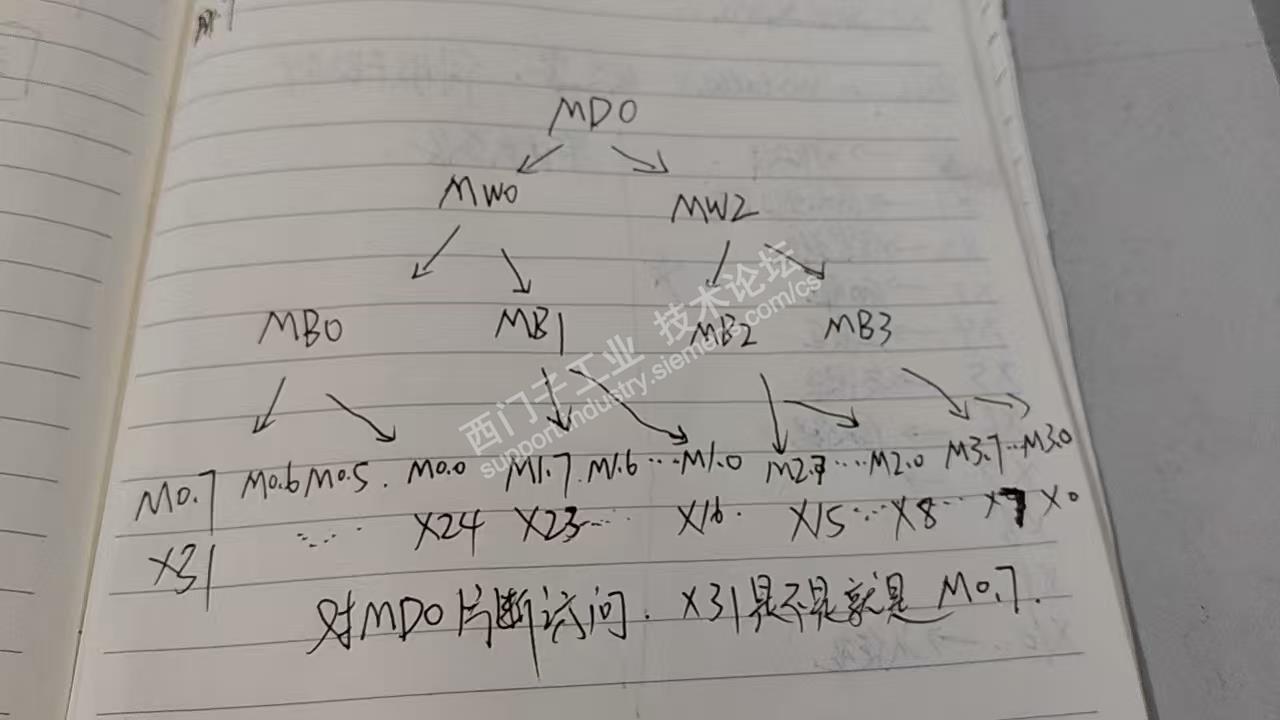 MD0
MW0 MW2
MB0 MB1 MB2 MB3
西门子工业 技术论坛
support.industry.siemens.com/cs
M0.7 M0.6 M0.5. M0.0 M1.7. M1.6 ...M1.0 M2.7....M2.0 M3.7...M3.0
X31 ...... X24 X23..... X16. X15....X8... X7 X0
对MD0片断访问. X31是不是就是 M0.7.